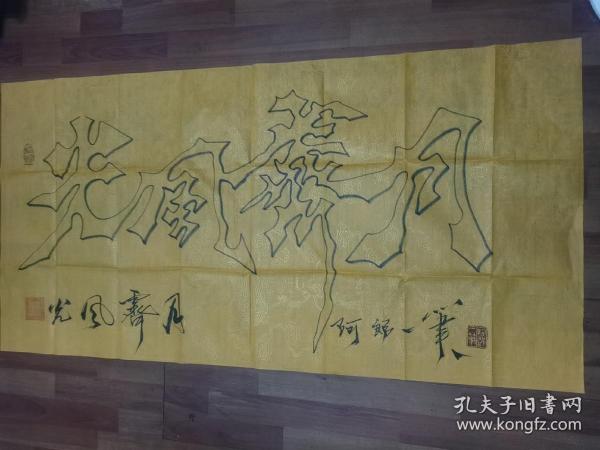 光風霽月
光风霽月
阿龍一筆
孔夫子旧書网
www.kongfz.com